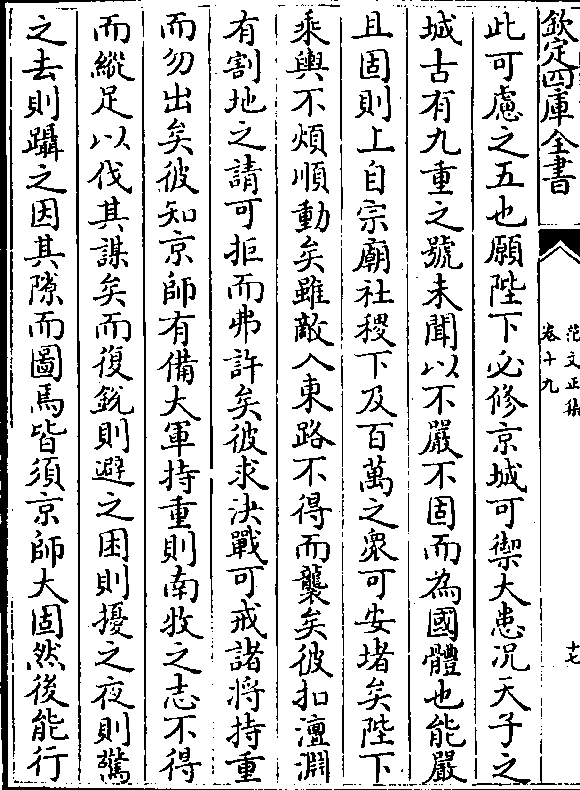 欽定四庫全書
范文正集
卷十九
十七
此可慮之五也願陛下必修京城可禦大患况天子之
城古有九重之號未聞以不嚴不固而為國體也能嚴
且固則上自宗廟社稷下及百萬之衆可安堵矣陛下
乘輿不煩順動矣雖敵入東路不得而襲矣彼扣澶淵
有割地之請可拒而弗許矣彼求決戰可戒諸将持重
而勿出矣彼知京師有備大軍持重則南牧之志不得
而縱足以伐其謀矣而復銳則避之困則擾之夜則驚
之去則躡之因其隙而圖焉皆須京師大固然後能行